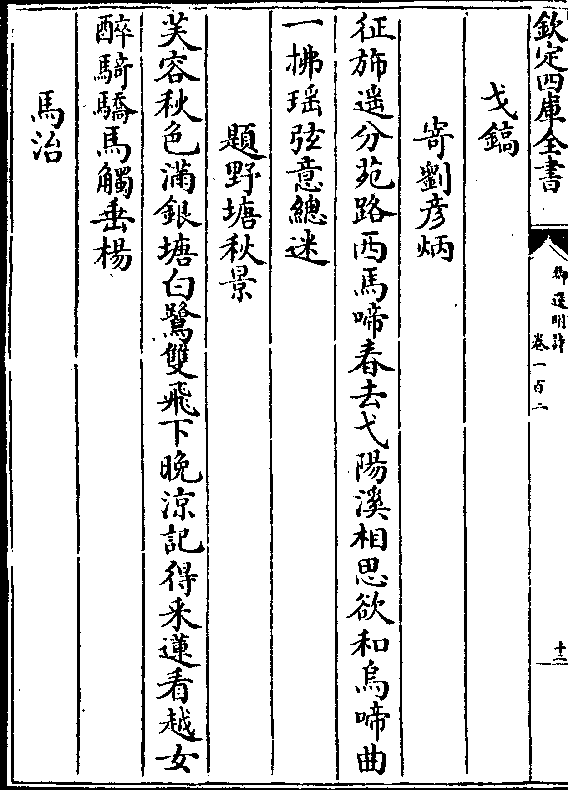 欽定四庫全書
御選明詩
卷一百二
十二
戈鎬
寄劉彦炳
征斾遥分苑路西馬啼春去弋陽溪相思欲和烏啼曲
一拂瑶弦意總迷
題野塘秋景
芙容秋色滿銀塘白鷺雙飛下晚凉記得采蓮看越女
醉騎驕馬觸垂楊
馬治